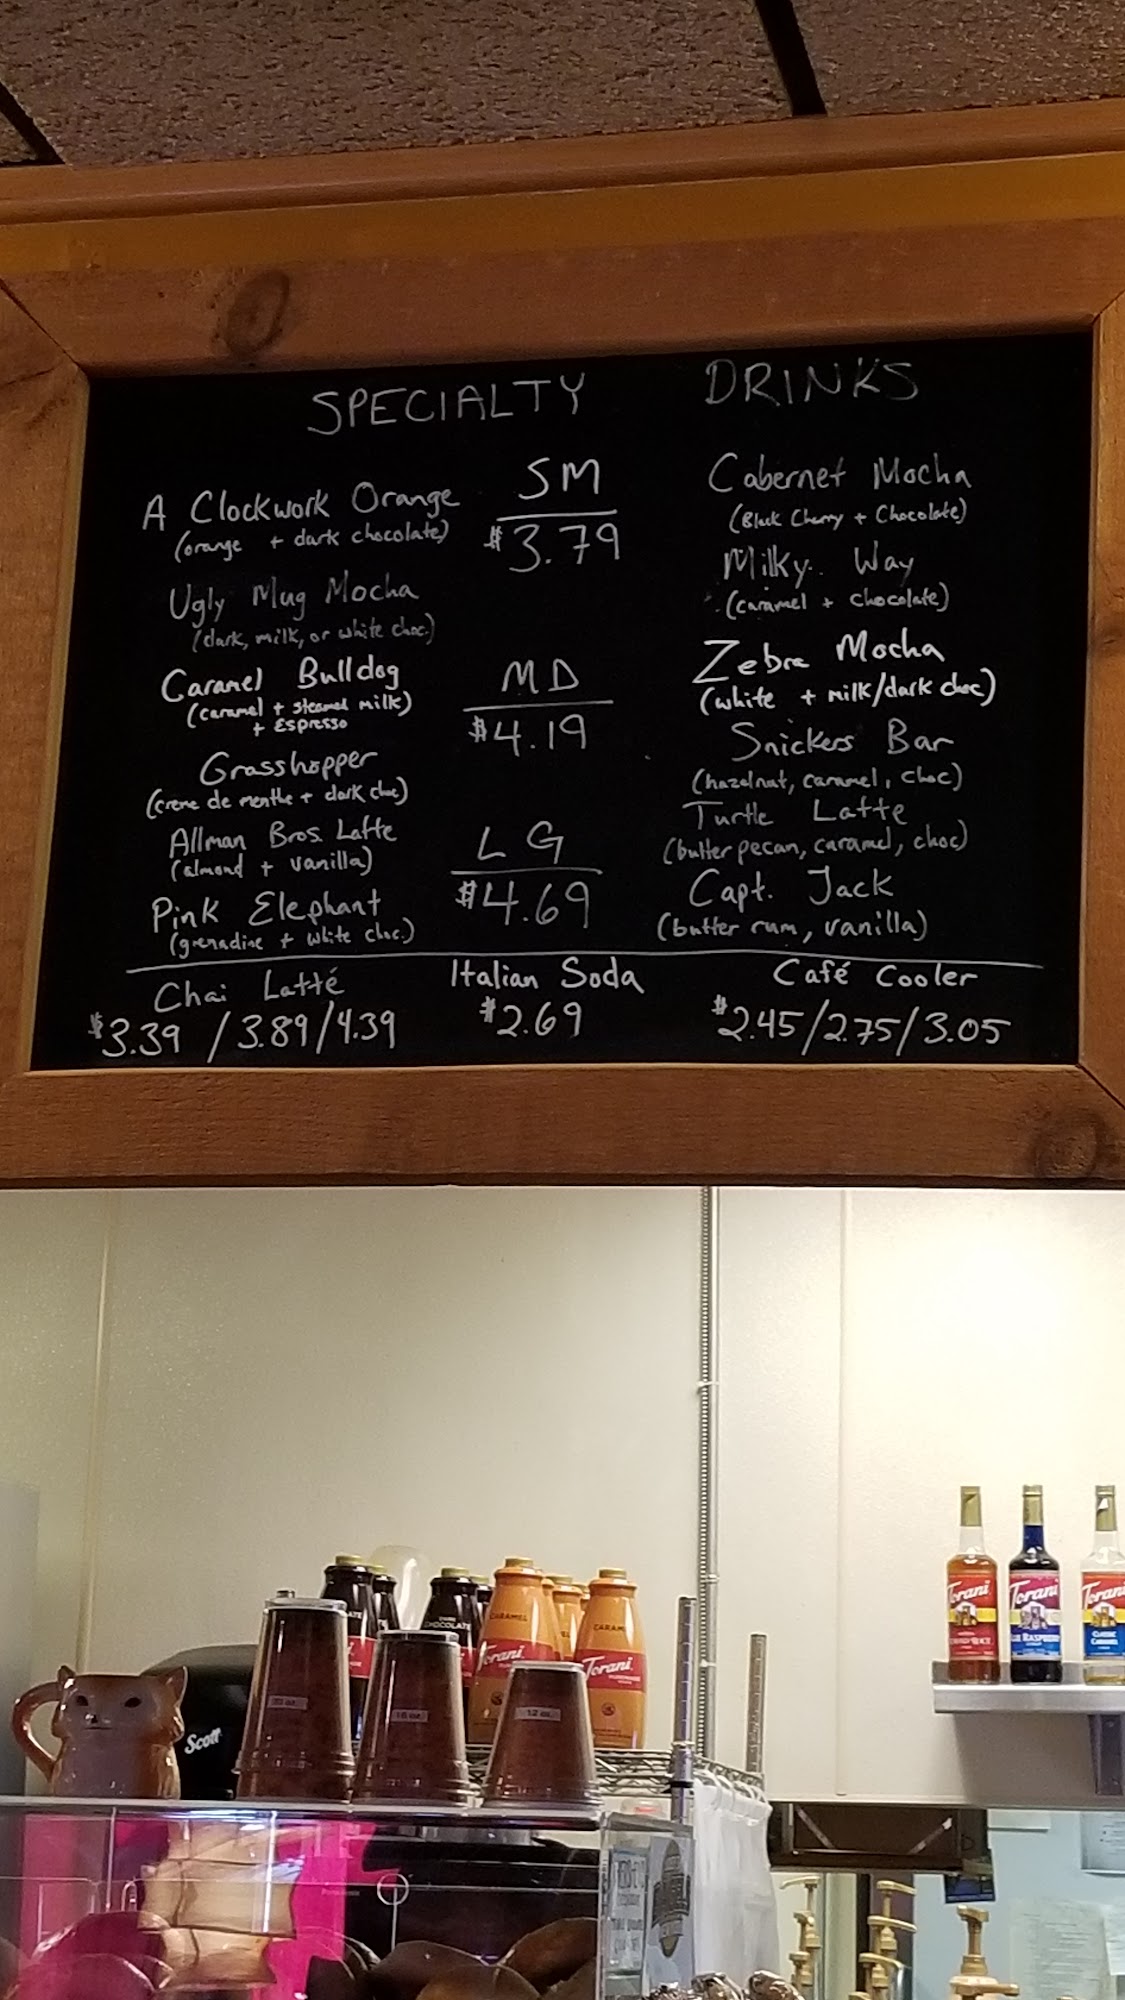 SPECIALTY DRINKS
A Clockwork Orange
(orange + dark chocolate)
Ugly Mug Mocha
(dark, milk, or white choc.)
Caramel Bulldog
(caramel + steamed milk)
+ Espresso
Grasshopper
(creme de menthe + dark choc)
Allman Bros. Latte
(almond + vanilla)
Pink Elephant
(grenadine + white choc.)
SM
$3.79
MD
$4.19
LG
$4.69
Cabernet Mocha
(Black Cherry + Chocolate)
Milky Way
(caramel + chocolate)
Zebra Mocha
(white + milk/dark choc)
Snickers Bar
(hazelnut, caramel, choc)
Turtle Latte
(butter pecan, caramel, choc)
Capt. Jack
(butter rum, vanilla)
Chai Latté
$3.39/3.89/4.39
Italian Soda
$2.69
Café Cooler
$2.45/2.75/3.05
Torani
Torani
BLUE RASPBERRY
Torani
CLASSIC
CARAMEL
DARK
CHOCOLATE
CARAMEL
Torani
CARAMEL
Torani
20 oz.
16 oz.
12 oz.
Scott